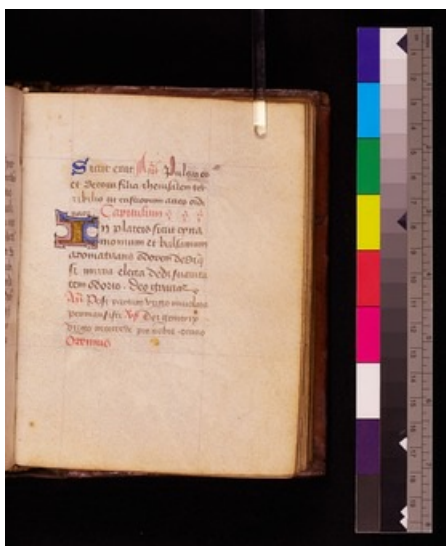 Sicut erat Añ Pulcra es
et decora filia iherusalem ter
ribilis ut castrorum acies ordi
nata Capitulum
In plateis sicut cyna
momum et balsamum
aromatizans odorem dedi q̃
si mirra electa dedi suavita
tem odoris. Deo gracias
Añ Post partum virgo inviolata
permansisti Vs̃ Dei genitrix
virgo intercede pro nobis
Oremus